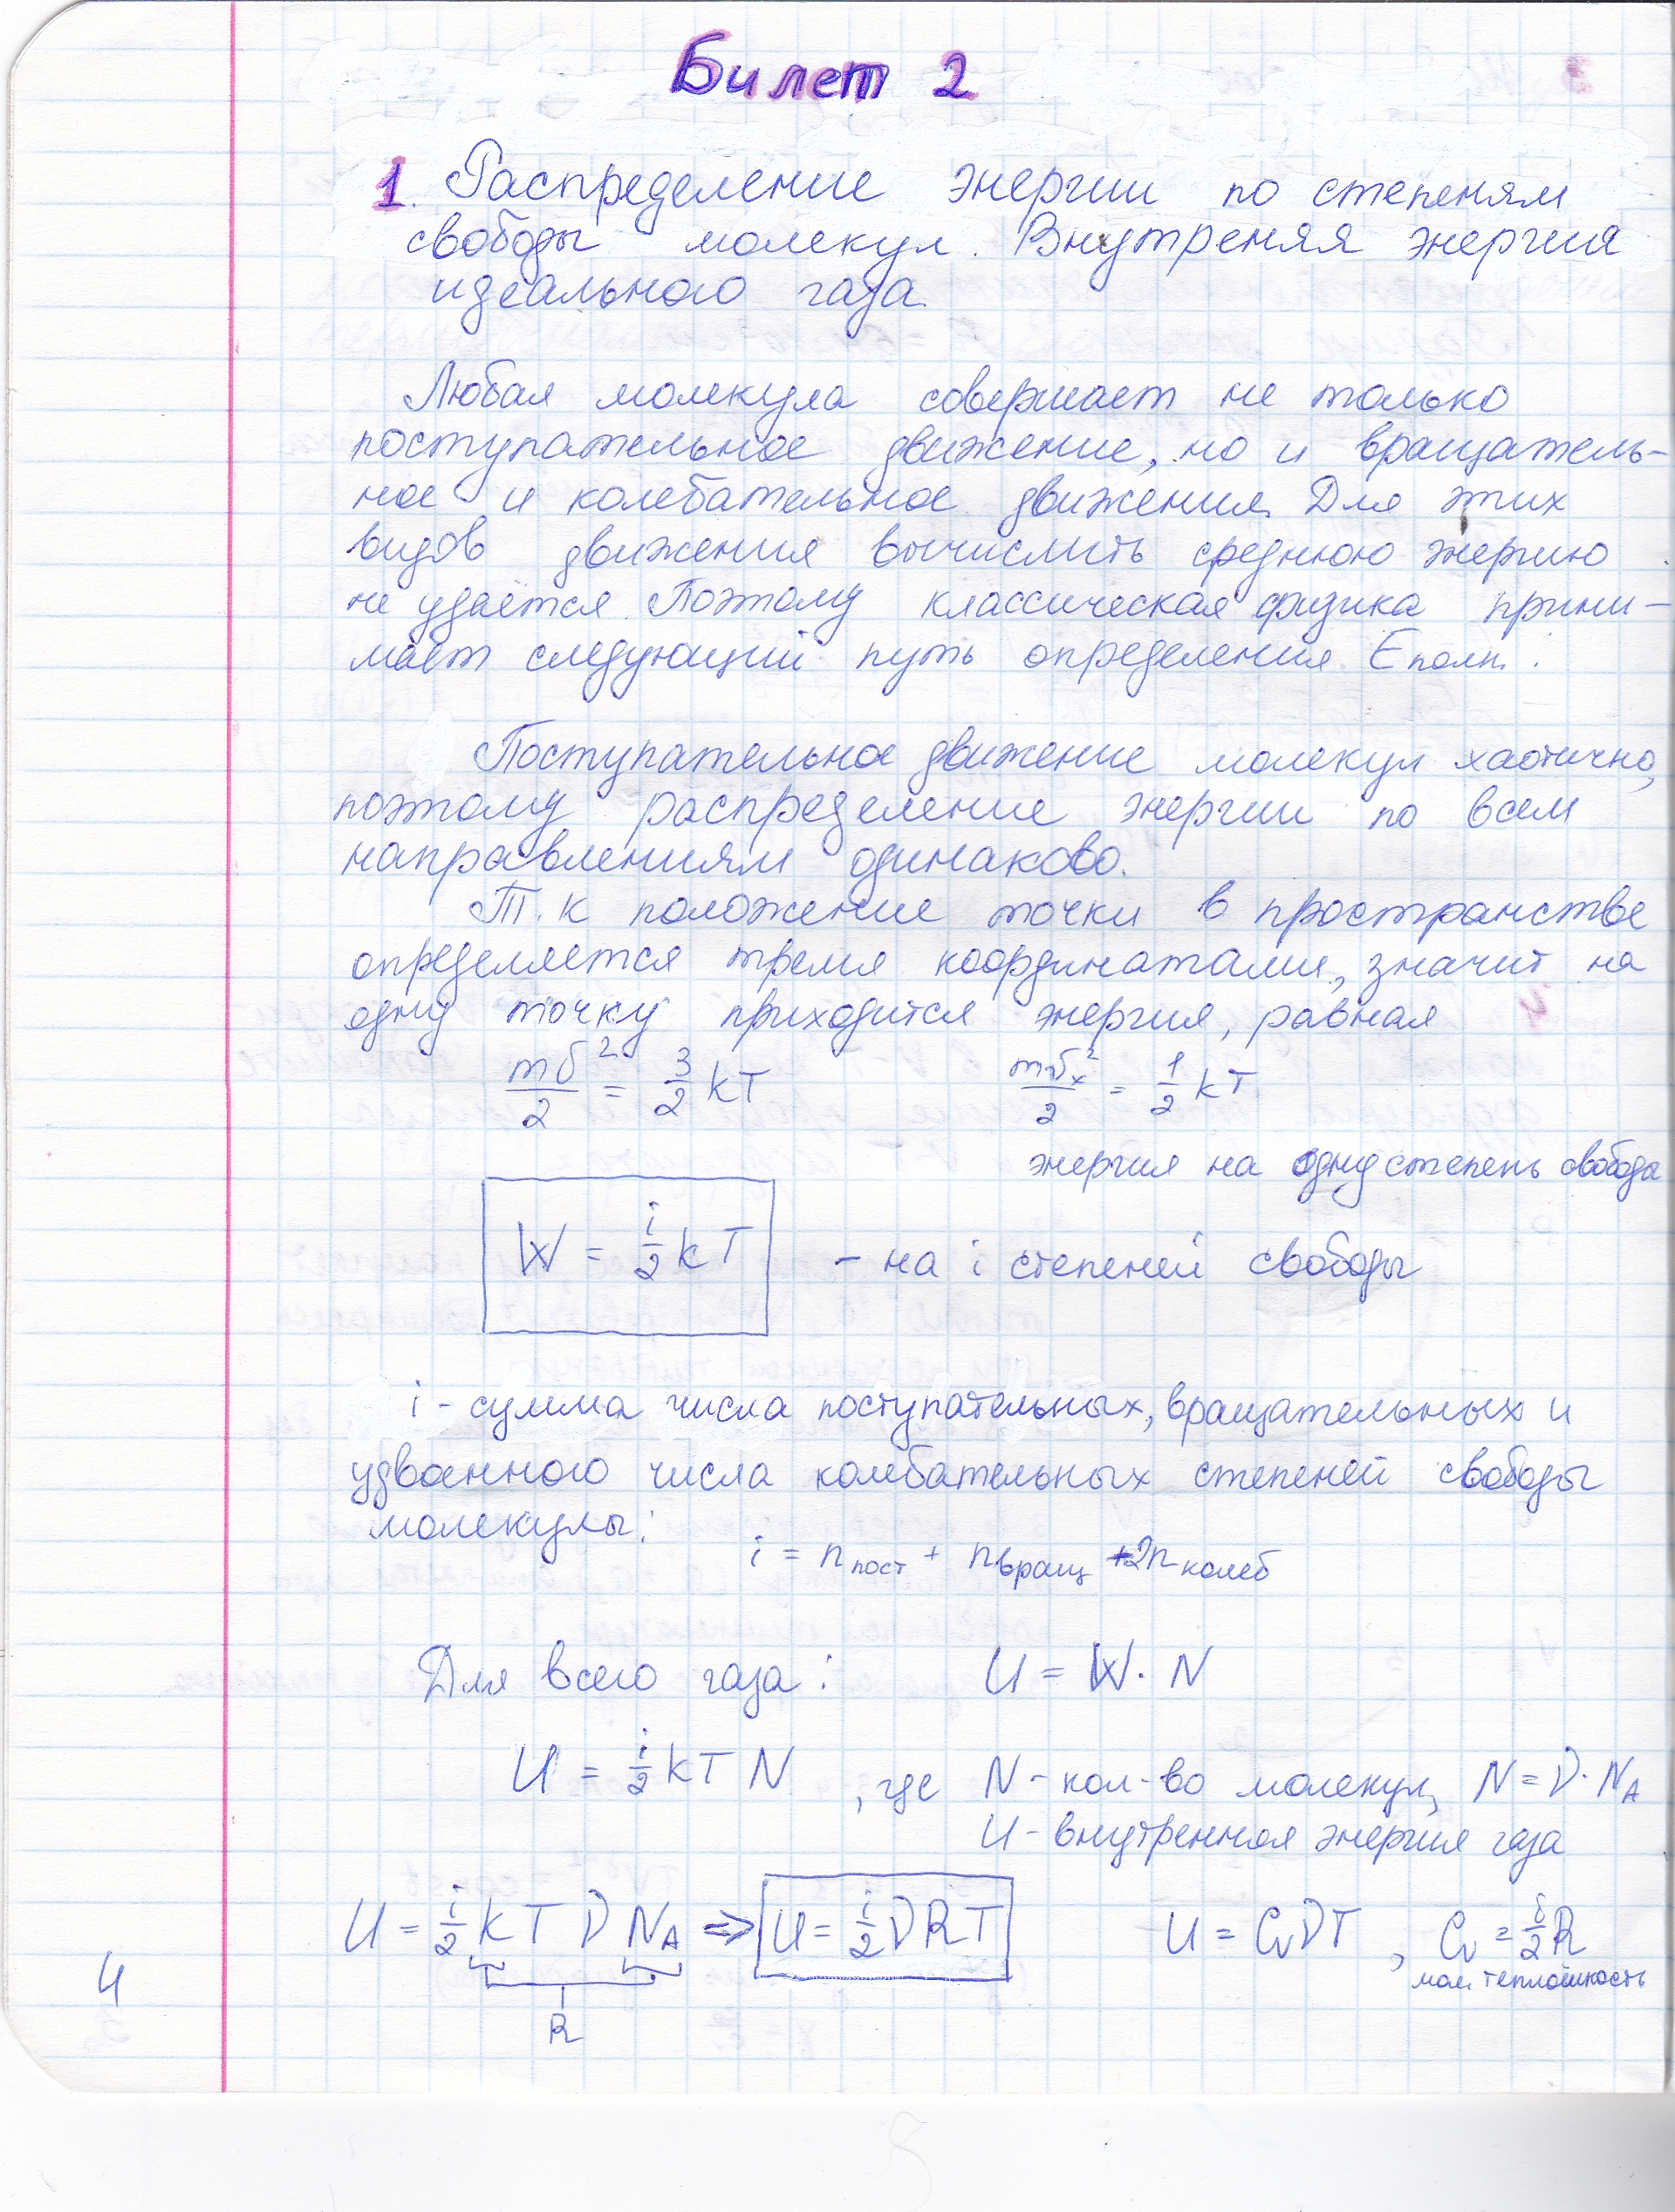 Билет 2
1. Распределение энергии по степеням
свободы молекул. Внутреняя энергия
идеального газа.
Любая молекула совершает не только
поступательное движение, но и вращатель-
ное и колебательное движения. Для этих
видов движения вычислить среднюю энергию
не удаётся. Поэтому классическая физика прини-
мает следующий путь определения Eполн.:
Поступательное движение молекул хаотично,
поэтому распределение энергии по всем
направлениям одинаково.
Т.к положение точки в пространстве
определяется тремя координатами, значит на
одну точку приходится энергия, равная
mv²/2 = 3/2 kT    mvₓ²/2 = 1/2 kT
энергия на одну степень свободы
W = i/2 kT – на i степеней свободы
i - сумма числа поступательных, вращательных и
удвоенного числа колебательных степеней свободы
молекулы:
i = nпост + nвращ + 2nколеб
Для всего газа: U = W · N
U = i/2 kTN , где N - кол-во молекул, N = ν · NA
U - внутренноя энергия газа
U = i/2 kTνNA ⇒ U = i/2 νRT    U = CvνT , Cv = i/2 R
мол. теплоёмкость
R
4